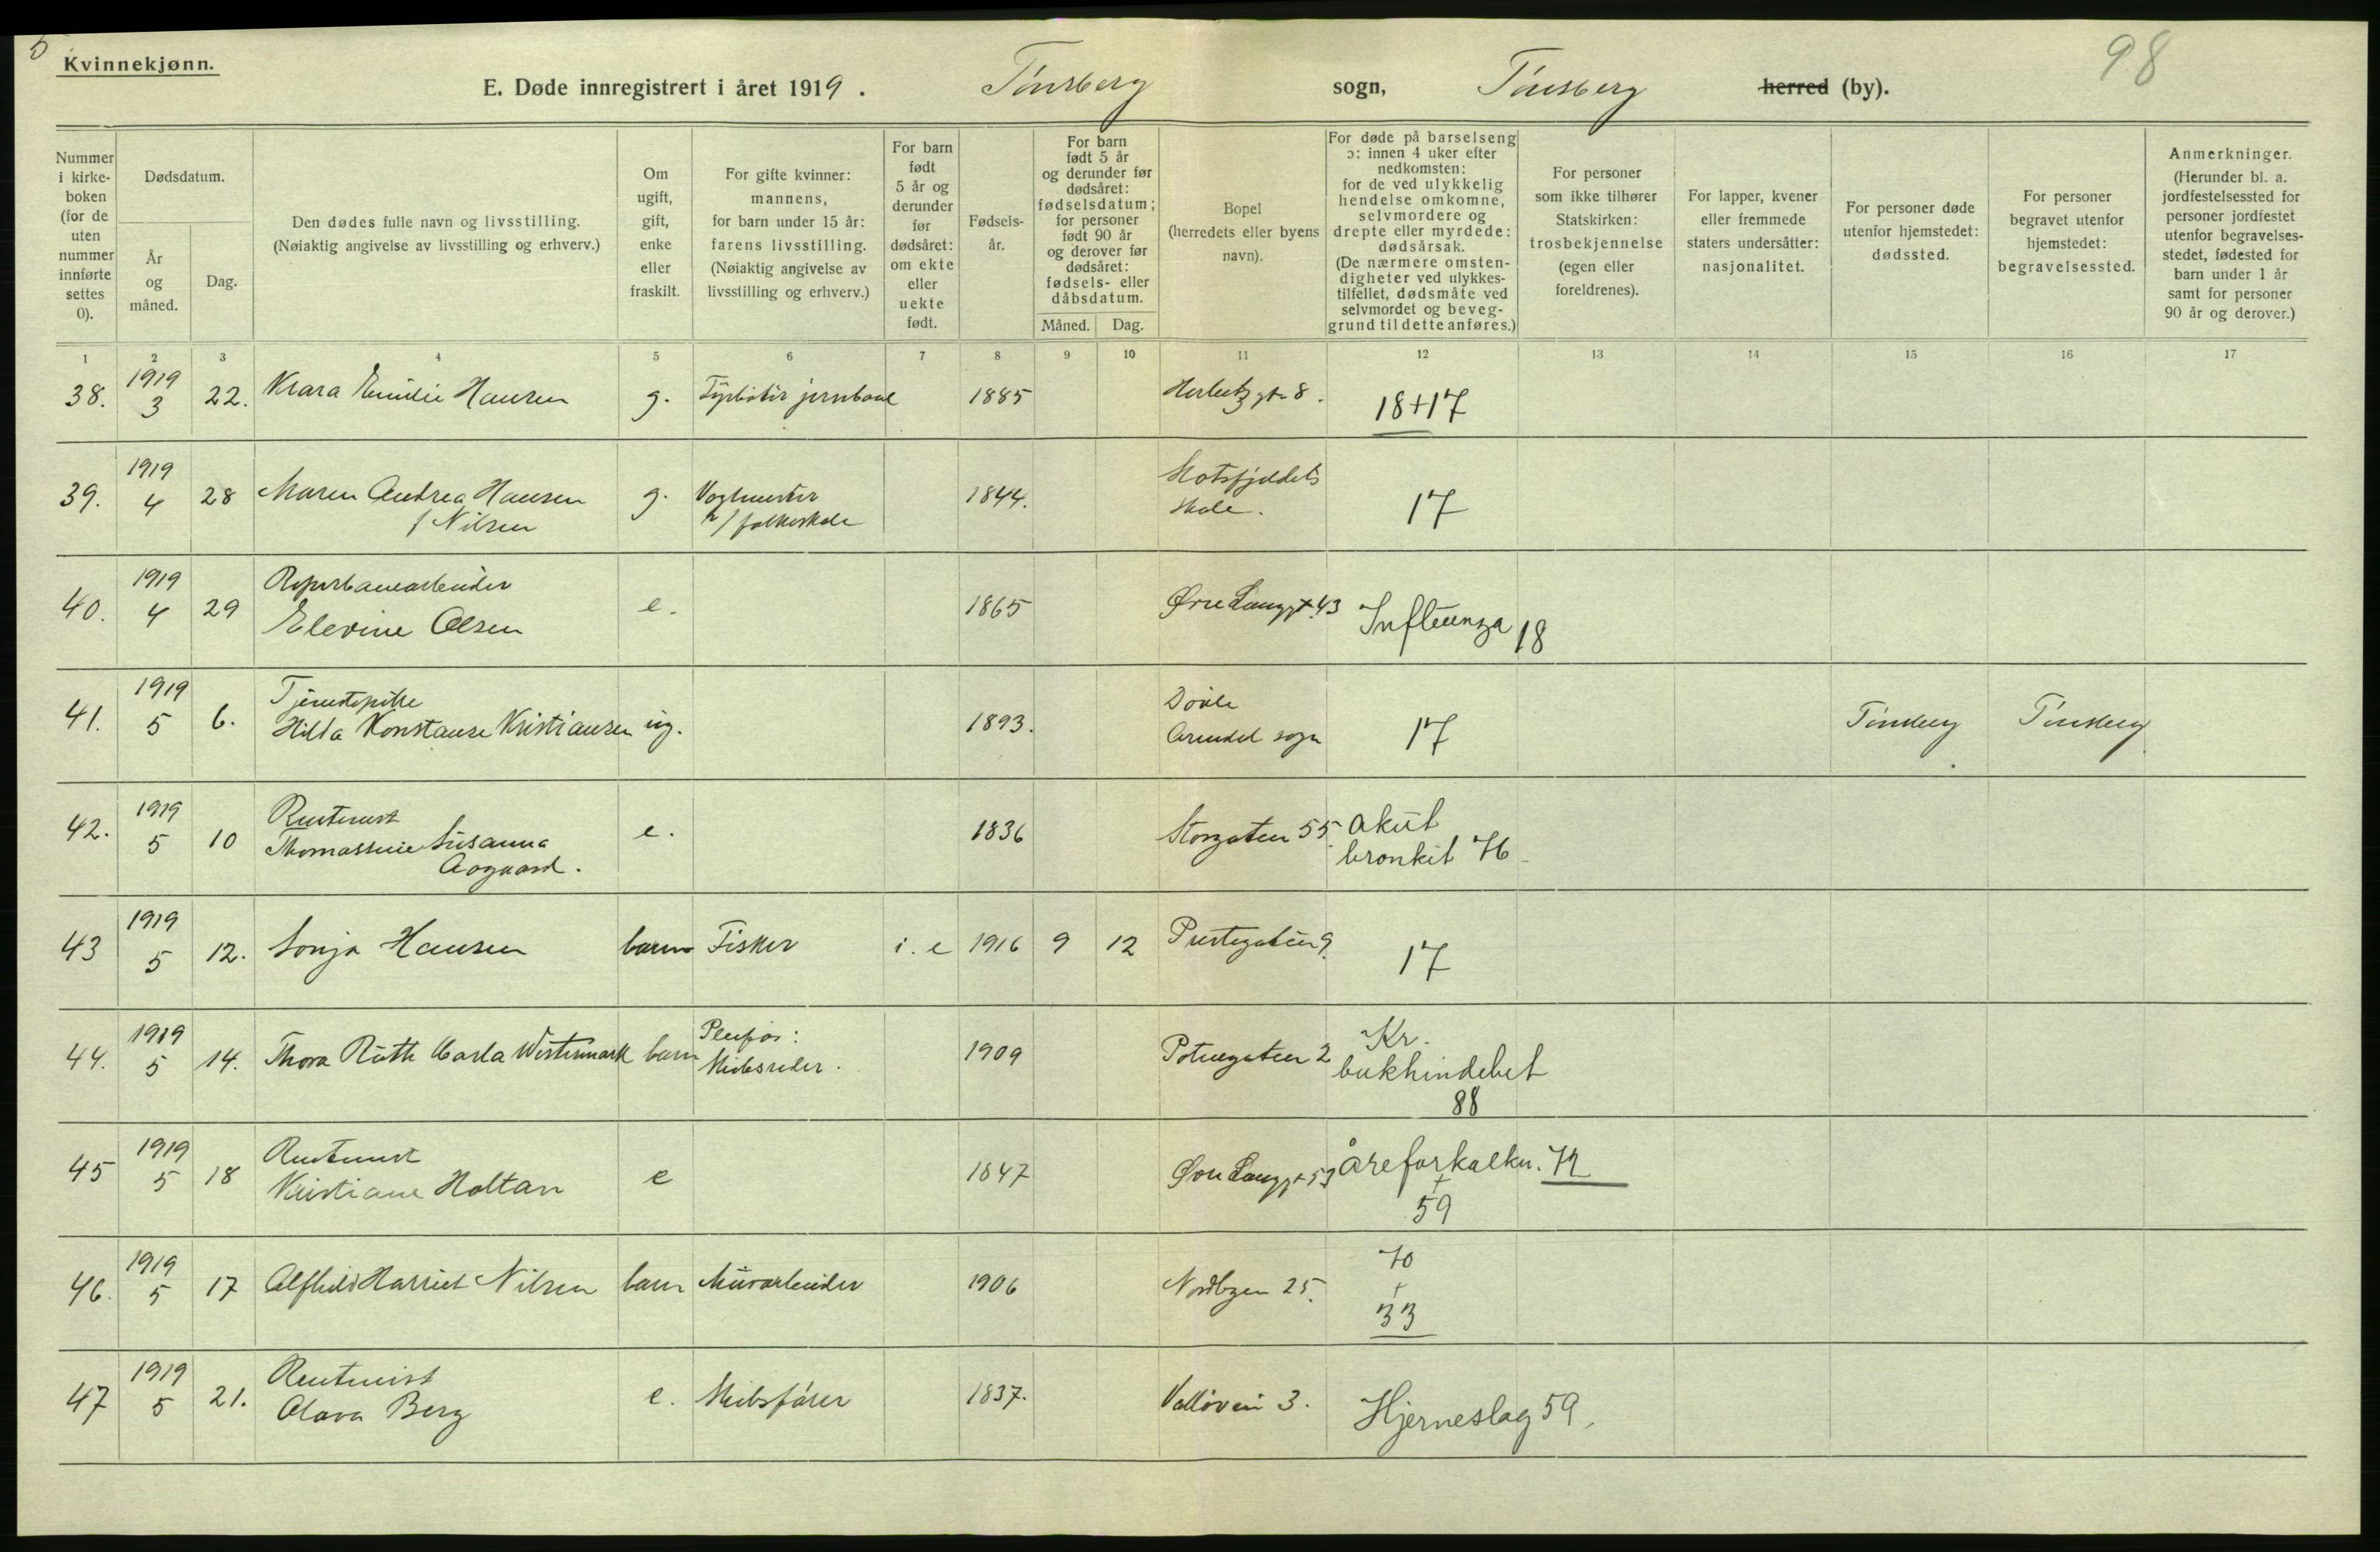 5
Kvinnekjønn.
98
E. Døde innregistrert i året 1919. Tønsberg sogn, Tønsberg herred (by).
Nummer i kirke- boken (for de uten nummer innførte settes 0).
Dødsdatum.
År og måned.
Dag.
Den dødes fulle navn og livsstilling.
(Nøiaktig angivelse av livsstilling og erhverv.)
Om ugift, gift, enke eller fraskilt.
For gifte kvinner: mannens, for barn under 15 år: farens livsstilling. (Nøiaktig angivelse av livsstilling og erhverv.)
For barn født 5 år og derunder før dødsåret: om ekte eller uekte født.
Fødsels- år.
For barn født 5 år og derunder før dødsåret: fødselsdatum; for personer født 90 år og derover før dødsåret: fødsels- eller dåbsdatum.
Måned. Dag.
Bopel (herredets eller byens navn).
For døde på barselseng ɔ: innen 4 uker efter nedkomsten: for de ved ulykkelig hendelse omkomne, selvmordere og drepte eller myrdede: dødsårsak. (De nærmere omsten- digheter ved ulykkes- tilfellet, dødsmåte ved selvmordet og beveg- grund til dette anføres.)
For personer som ikke tilhører Statskirken: trosbekjennelse (egen eller foreldrenes).
For lapper, kvener eller fremmede staters undersåtter: nasjonalitet.
For personer døde utenfor hjemstedet: dødssted.
For personer begravet utenfor hjemstedet: begravelsessted.
Anmerkninger. (Herunder bl. a. jordfestelsessted for personer jordfestet utenfor begravelses- stedet, fødested for barn under 1 år samt for personer 90 år og derover.)
1 2 3 4 5 6 7 8 9 10 11 12 13 14 15 16 17
38. 1919 3 22. Klara Emilie Hansen g. Fyrbøter jernbane 1885 gt. 8. 18+17
39. 1919 4 28 Maren Andrea Hansen g. Vagtmester 1844. Slotsfjeldets
f Nilsen v/ folkeskole skole. 17
40. 1919 4 29 Reperbanearbeider
Elevine Olsen e. 1865 Øvre Langgt. 43 Influenza 18
41. 1919 5 6. Tjenestepike
Hilda Konstanse Kristiansen ug. 1893. Arendal sogn 17 Tønsberg Tønsberg
42. 1919 5 10 Rentenist
Thomassine Susanna
Aagaard. e. 1836 Storgaten 55. akut
bronkit 76
43 1919 5 12. Sonja Hansen barn Fisker i. e 1916 9 12 Prestegaten 9. 17
44. 1919 5 14. Thora Ruth Carla Westermark barn Pleiefar:
Skibsreder. 1909 2 Kr.
bukhindebet
88
45 1919 5 18 Rentenist
Kristiane Holtan e 1847 Øvre Langgt 53 åreforkalkn. 72
+
59
46. 1919 5 17 Alfhild Harriet Nilsen barn Murarbeider 1906 Nordbyen 25. 70
+
33
47 1919 5 21. Rentenist
Olava Berg e. Skibsfører 1837. Valløvein 3. Hjerneslag 59.